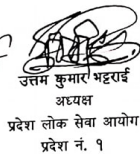 उत्तम कुमार भट्टराई
अध्यक्ष
प्रदेश लोक सेवा आयोग
प्रदेश नं. १